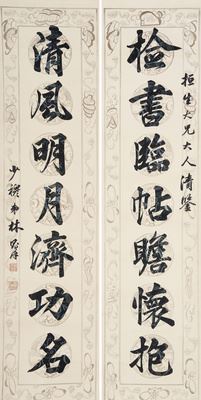 桓生大兄大人清鑒
检書臨帖瞻懷抱
清風明月濟功名
少穆弟林則徐